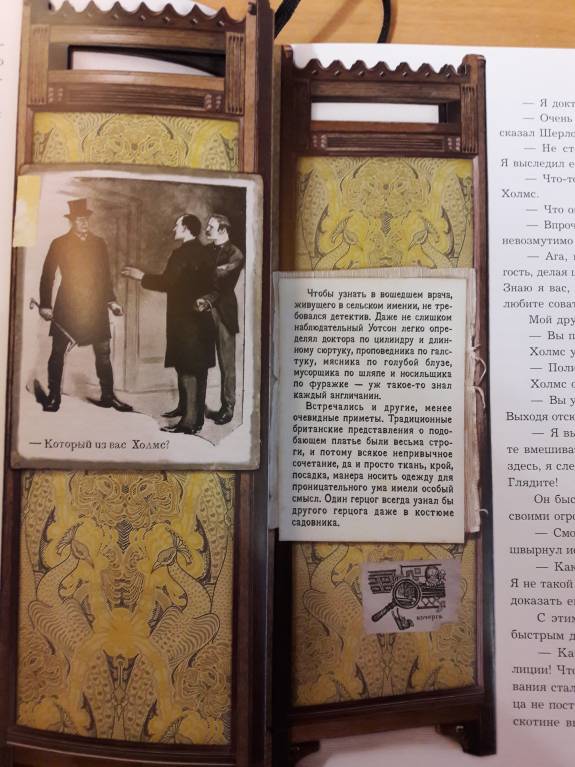 — Который из вас Холмс?
Чтобы узнать в вошедшем врача,
живущего в сельском имении, не тре-
бовался детектив. Даже не слишком
наблюдательный Уотсон легко опре-
делял доктора по цилиндру и длин-
ному сюртуку, проповедника по галс-
туку, мясника по голубой блузе,
мусорщика по шляпе и носильщика
по фуражке — уж такое-то знал
каждый англичанин.
Встречались и другие, менее
очевидные приметы. Традиционные
британские представления о подо-
бающем платье были весьма стро-
ги, и потому всякое непривычное
сочетание, да и просто ткань, крой,
посадка, манера носить одежду для
проницательного ума имели особый
смысл. Один герцог всегда узнал бы
другого герцога даже в костюме
садовника.
кочерга
— Я докт
— Очень
сказал Шерло
— Не ст
Я выследил е
— Что-то
Холмс.
— Что о
— Впроч
невозмутимо
— Ага,
гость, делая ш
Знаю я вас,
любите соват
Мой дру
— Вы п
Холмс у
— Поли
Холмс с
— Вы у
Выходя отсю
— Я вы
те вмешиват
здесь, я сле
Глядите!
Он быс
своими огро
— Смо
швырнул ис
— Как
Я не такой
доказать е
С этим
быстрым д
— Ка
лиции! Чт
вания стал
ца не пост
скотине в